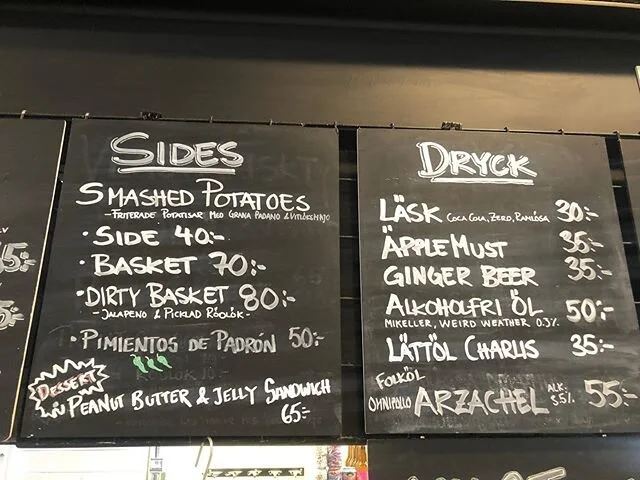 SIDES
SMASHED POTATOES
-FRITERADE POTATISAR MED GRANA PADANO & VITLÖKSMAJO
·SIDE 40:-
·BASKET 70:-
·DIRTY BASKET 80:-
-JALAPENO & PICKLAD RÖDLÖK-
·PIMIENTOS DE PADRÓN 50:-
DESSERT
PEANUT BUTTER & JELLY SANDWICH
65:-
DRYCK
LÄSK COCA COLA, ZERO, RAMLÖSA 30:-
ÄPPLE MUST 35:-
GINGER BEER 35:-
ALKOHOLFRI ÖL 50:-
MIKELLER, WEIRD WEATHER 0.3%
LÄTTÖL CHARLIS 35:-
FOLKÖL
OMNIPOLLO ARZACHEL ALK. 3.5% 55:-